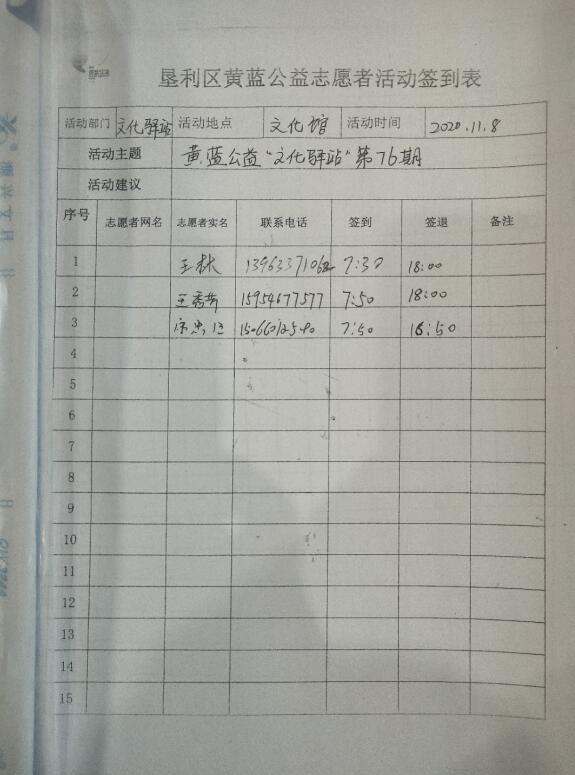 垦利区黄蓝公益志愿者活动签到表
活动部门 文化驿站 活动地点 文化馆 活动时间 2020.11.8
活动主题 黄蓝公益“文化驿站”第76期
活动建议
序号 志愿者网名 志愿者实名 联系电话 签到 签退 备注
1 王林 7:30 18:00
2 15954677577 7:50 18:00
3 7:50 18:50
4
5
6
7
8
9
10
11
12
13
14
15